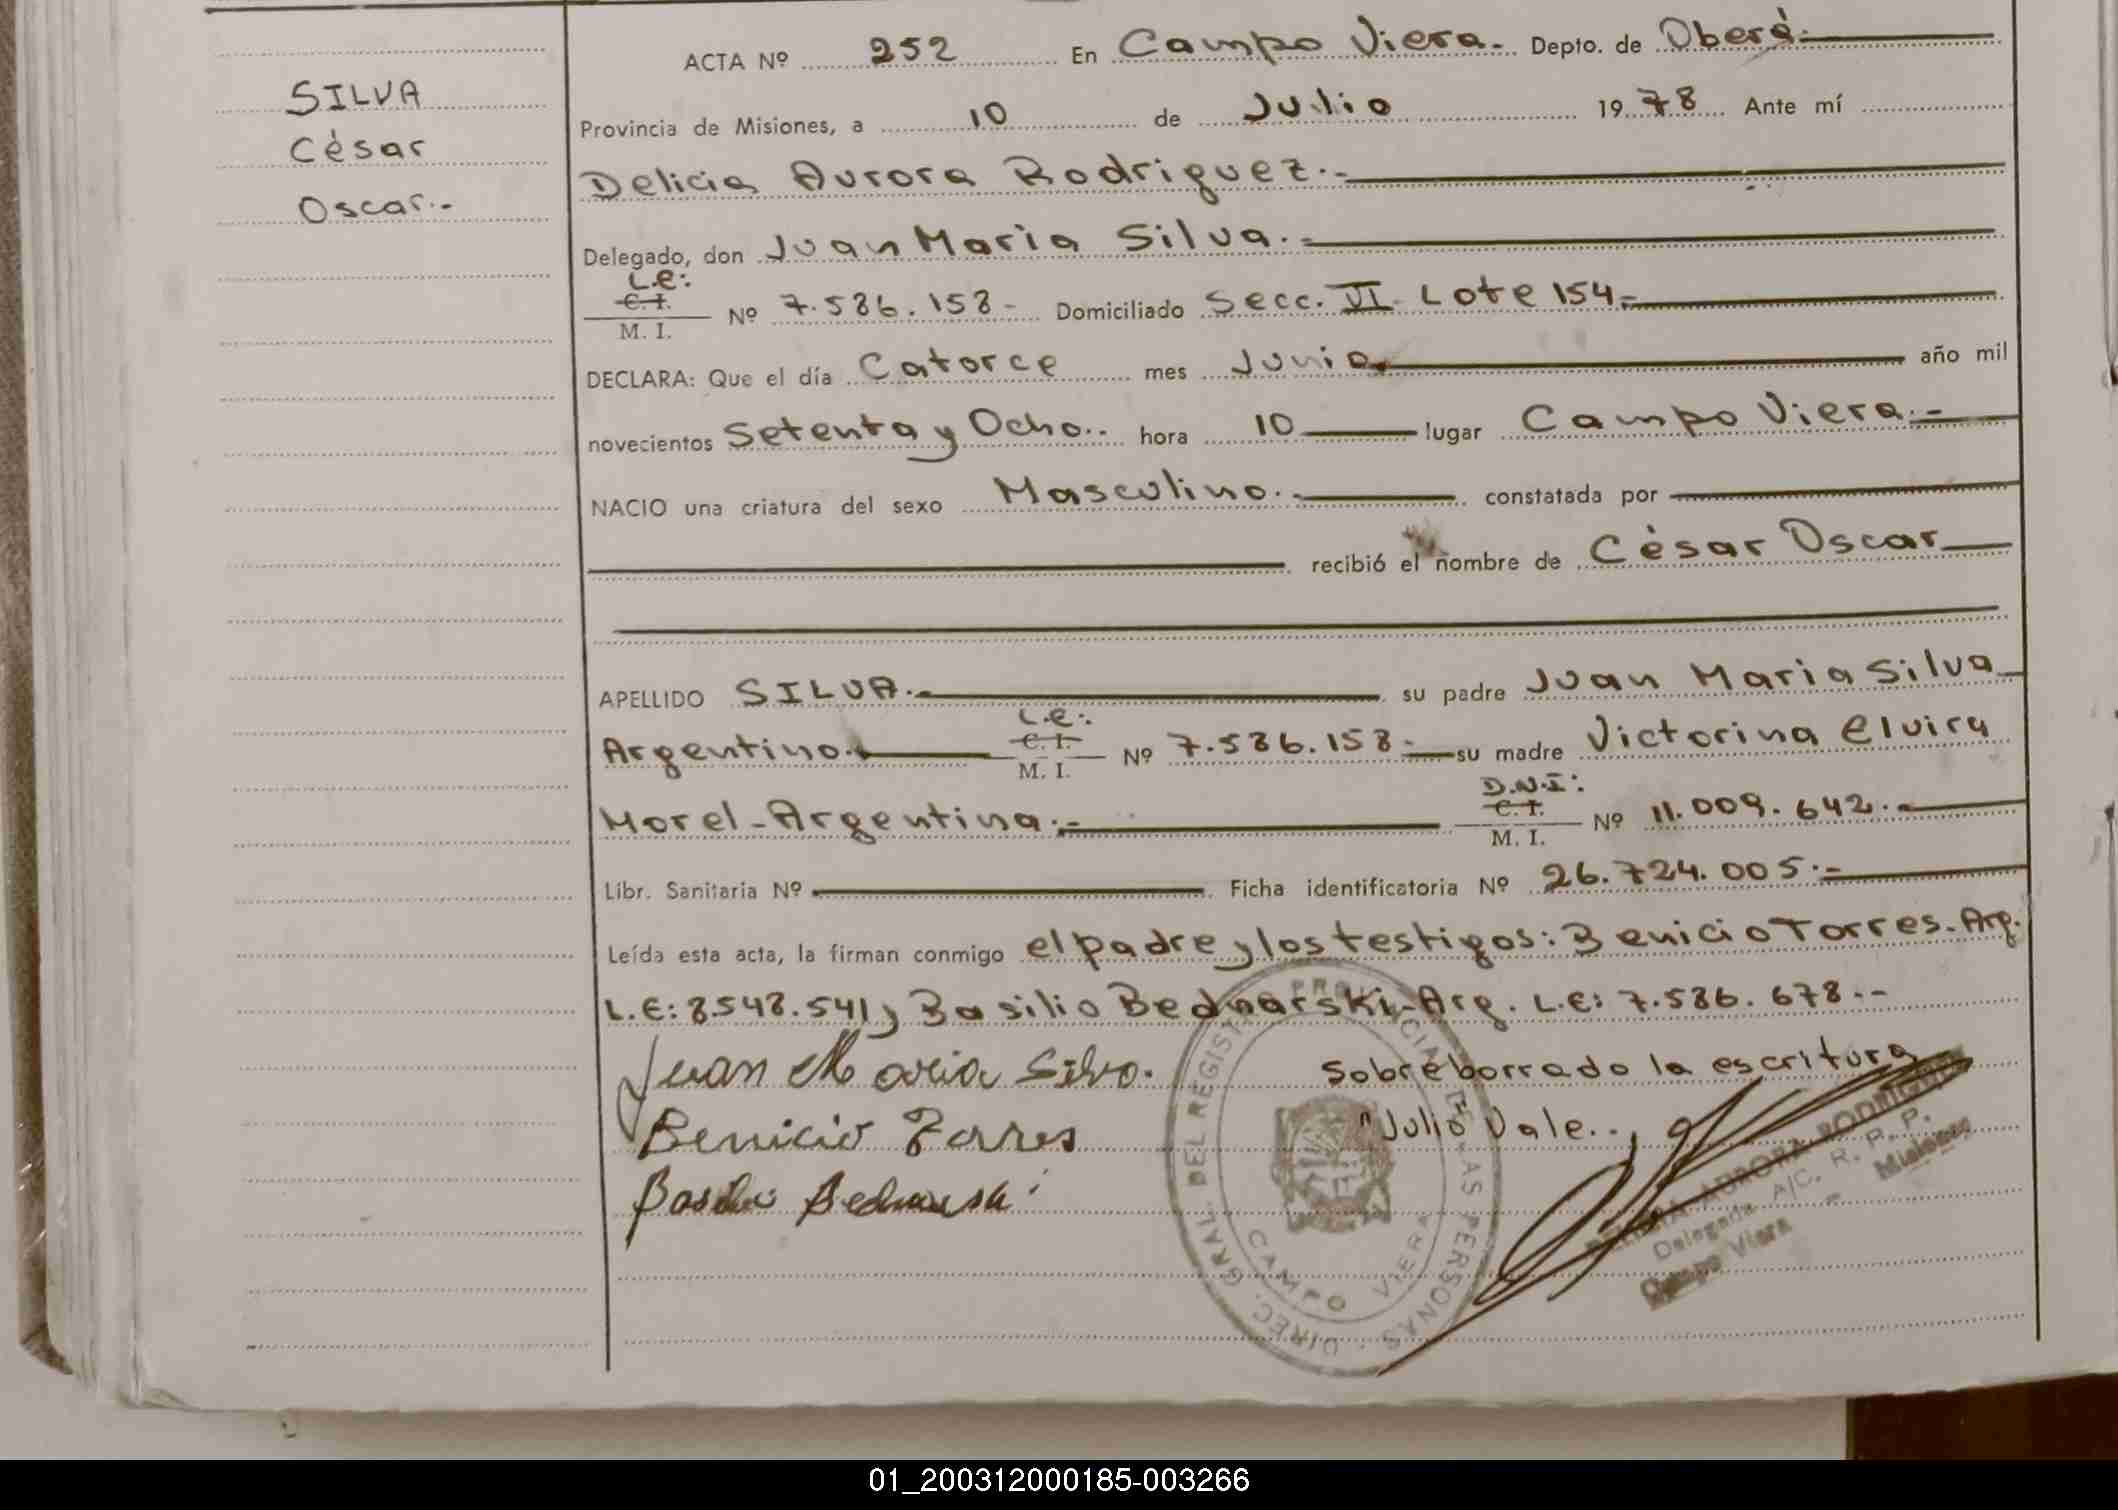 SILVA
Cèsar
Oscar.-
ACTA Nº 252 En Campo Viera.- Depto. de Oberá.-
Provincia de Misiones, a 10 de Julio 19 78 Ante mí
Delicia Aurora Rodriguez.-
Delegado, don Juan Maria Silva.-
L.E:
C. I.
M. I.
Nº 7.586.158- Domiciliado Secc. VI- Lote 154.-
DECLARA: Que el día Catorce mes Junio año mil
novecientos Setenta y Ocho.. hora 10 lugar Campo Viera.-
NACIO una criatura del sexo Masculino.- constatada por
recibió el nombre de Cèsar Oscar
APELLIDO SILVA.- su padre Juan Maria Silva
L.E:
C. I.
M. I.
Argentino.- Nº 7.586.158.- su madre Victorina Elvira
D.N.I:
C. I.
M. I.
Morel-Argentina.- Nº 11.009.642.-
Libr. Sanitaria Nº Ficha identificatoria Nº 26.724.005.-
Leída esta acta, la firman conmigo el padre y los testigos: Benicio Torres-Arg.
L.E: 8.548.541 y Basilio Bednarski-Arg. L.E: 7.586.678.--
Juan Maria Silva. Sobre borrado la escritura
Benicio Torres "Julio" Vale..
Basilio Bednarski
DIREC. GRAL. DEL REGISTRO PROVINCIAL DE LAS PERSONAS
CAMPO VIERA
DELICIA AURORA RODRIGUEZ
Delegada A/C. R. P. P.
Campo Viera - Misiones
01_200312000185-003266